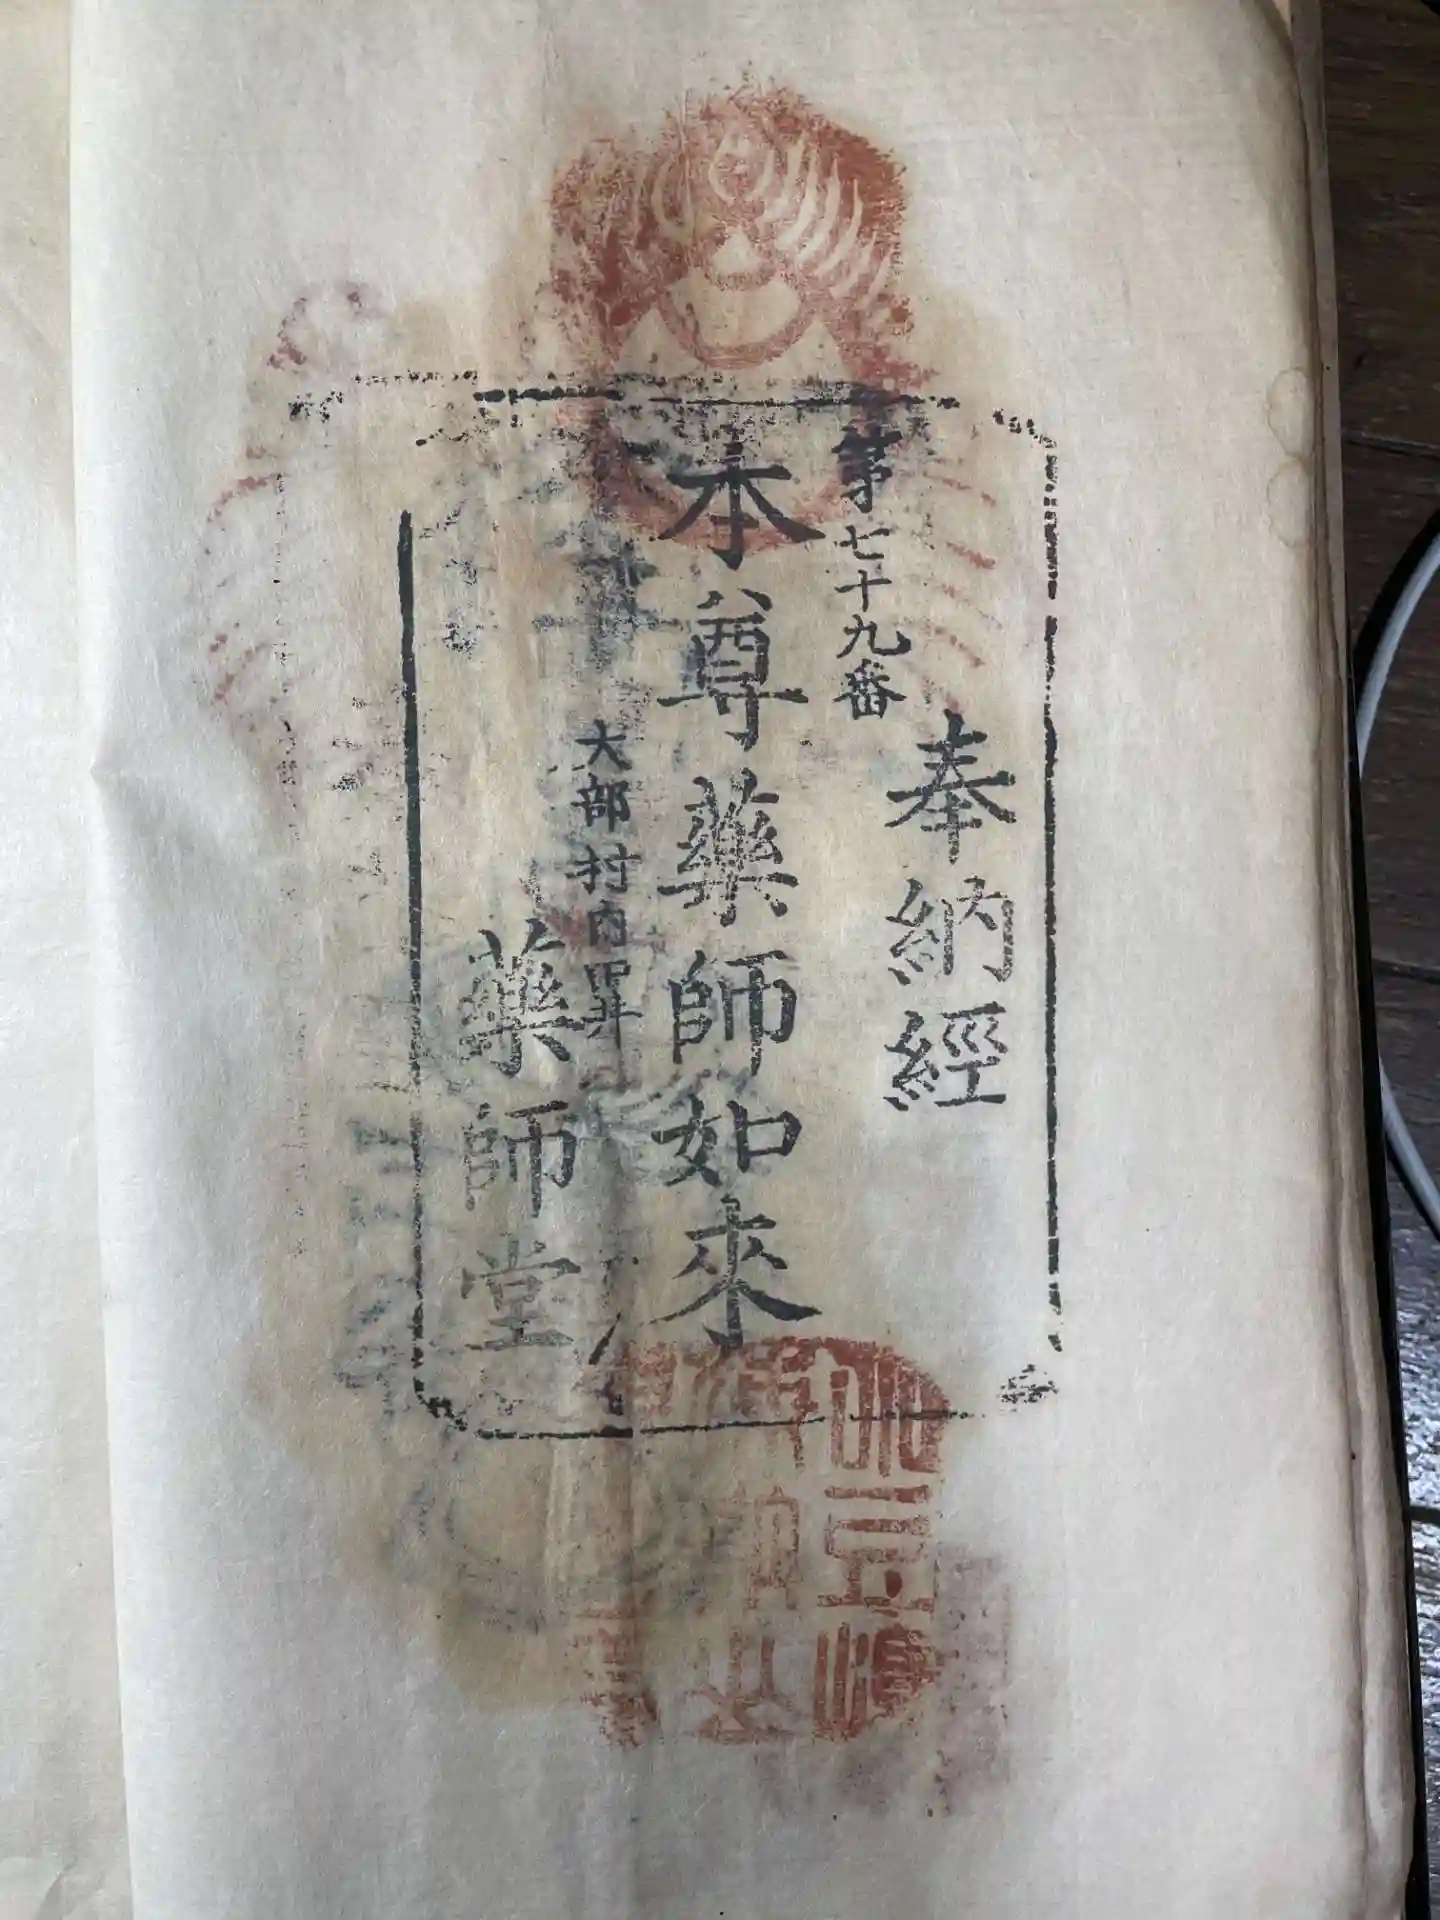 奉納經
第七十九番
本尊藥師如來
大部村内
藥師堂